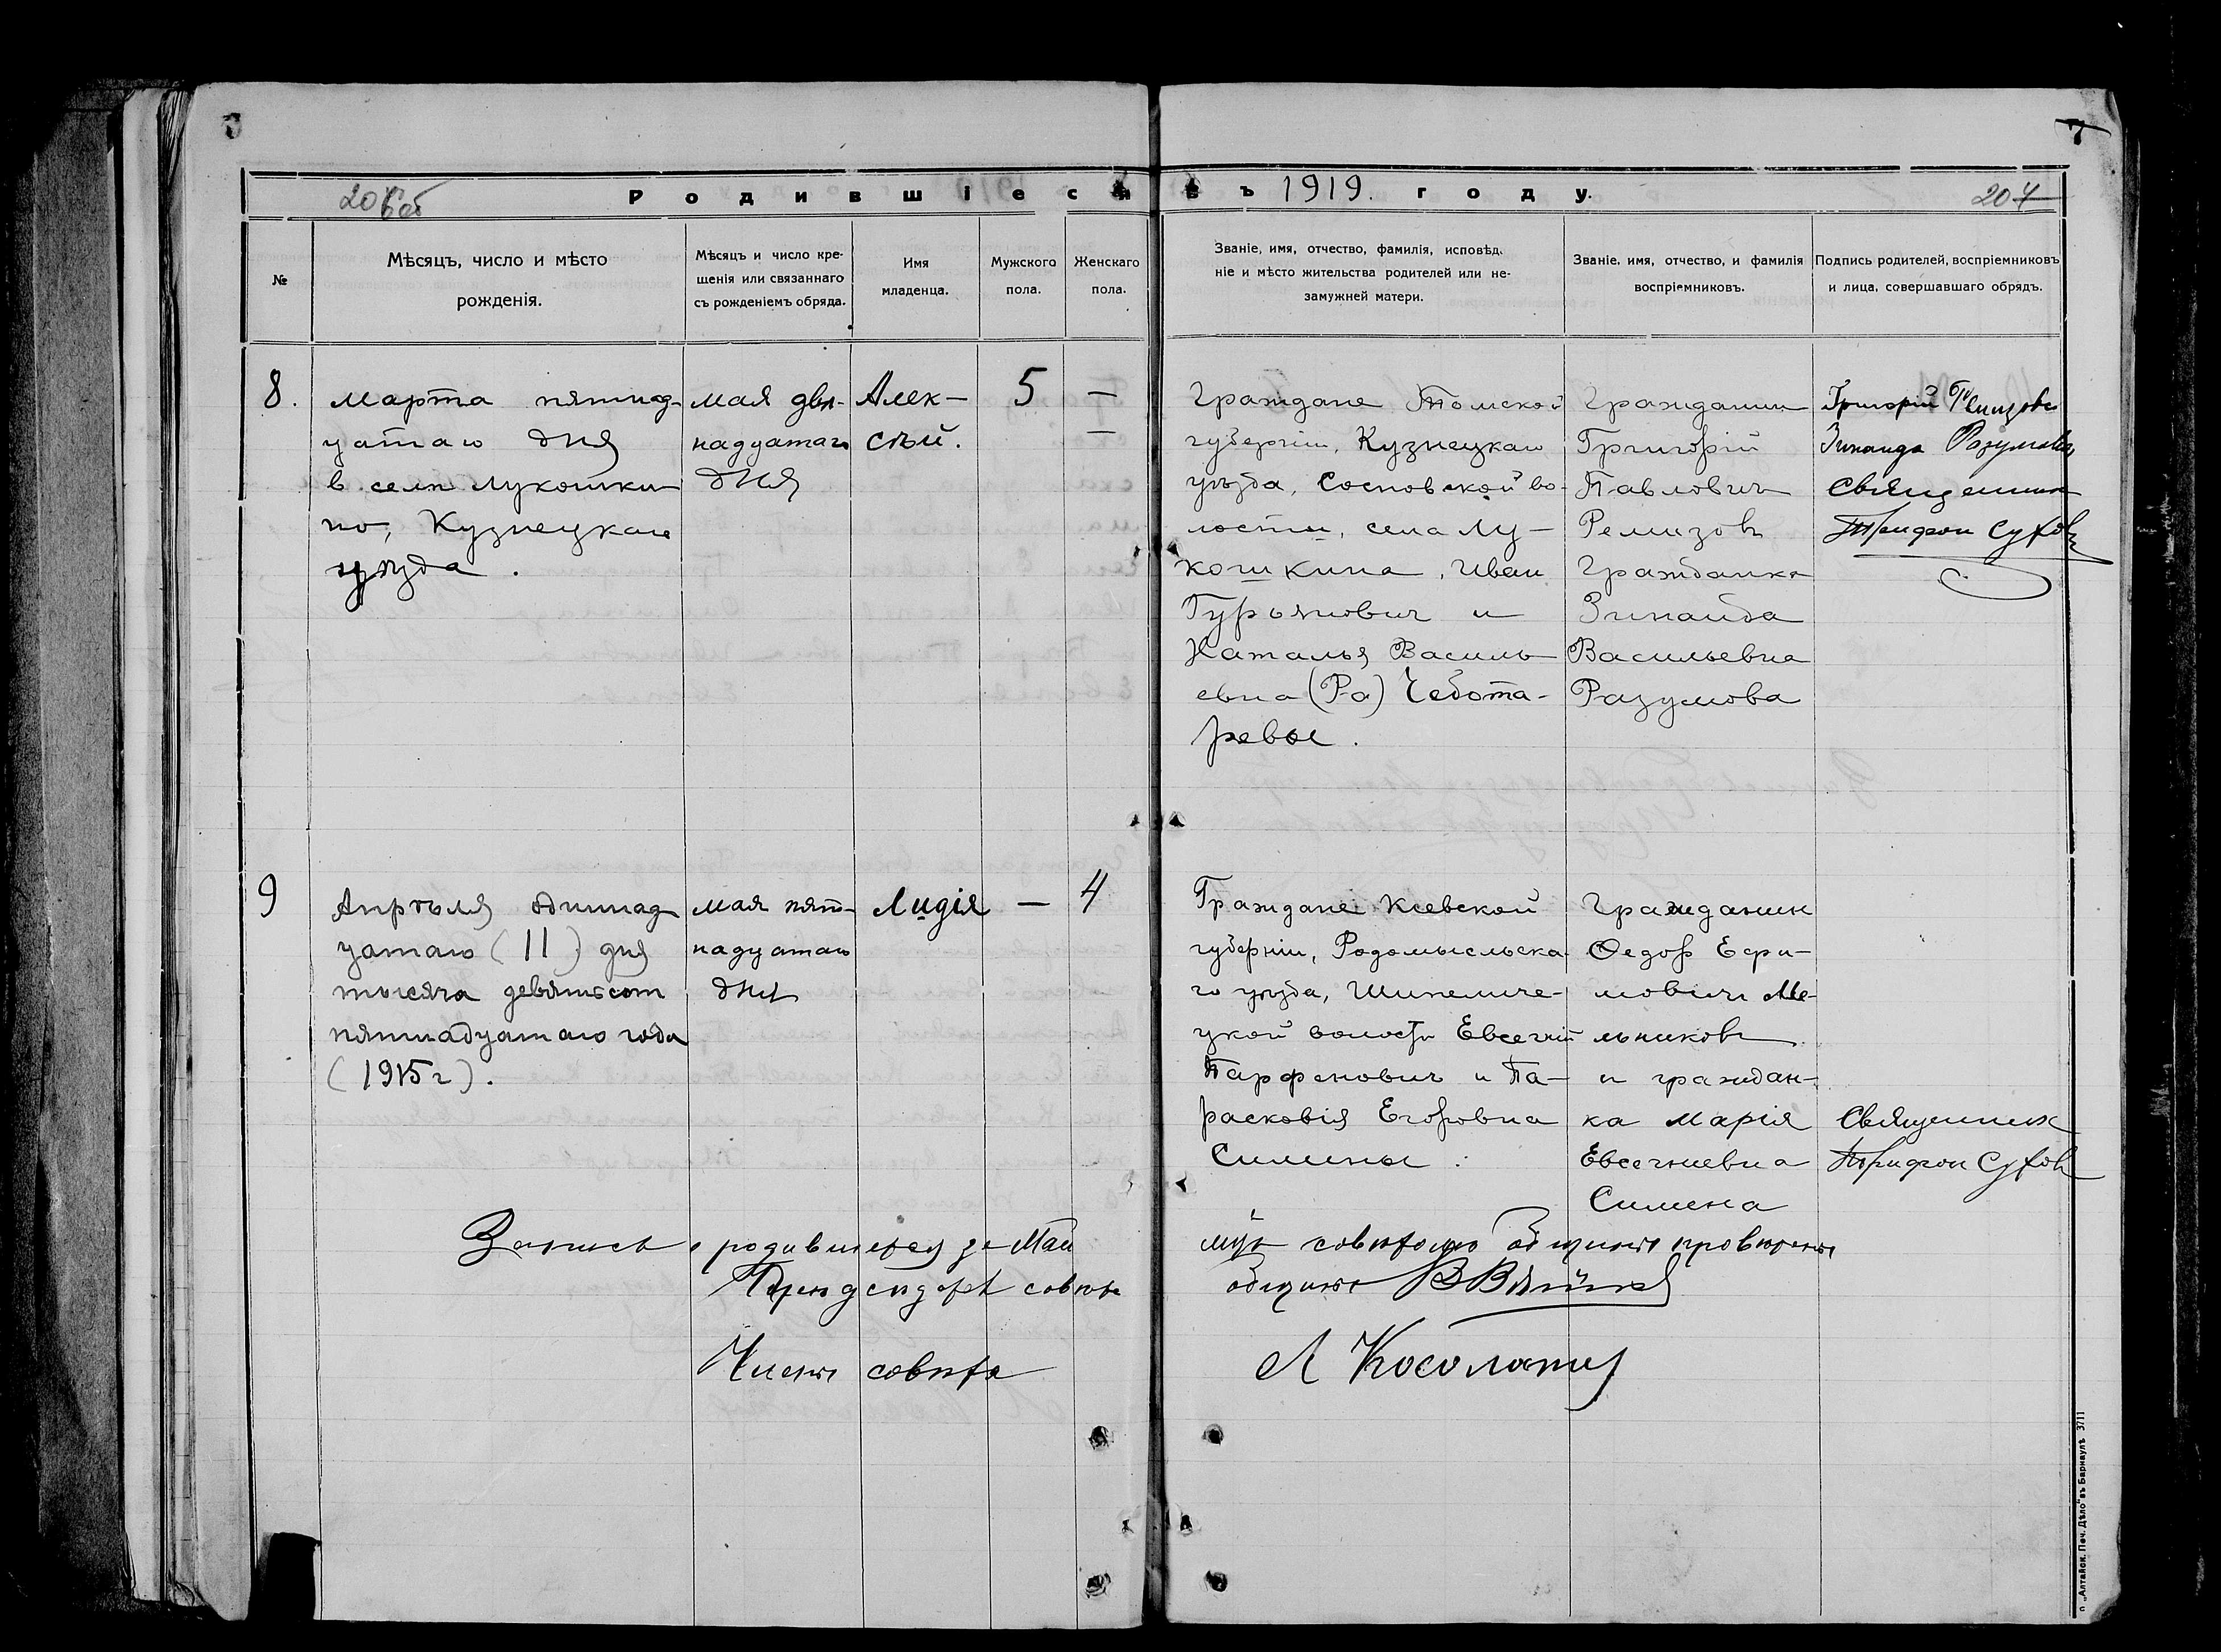 7
206об
Родившіеся въ 1919. году.
204
№
Мѣсяцъ, число и мѣсто
рожденія.
Мѣсяцъ и число кре-
щенія или связаннаго
съ рожденіемъ обряда.
Имя
младенца.
Мужского
пола.
Женскаго
пола.
Званіе, имя, отчество, фамилія, исповѣд.
ніе и мѣсто жительства родителей или не-
замужней матери.
Званіе, имя, отчество, и фамилія
воспріемниковъ.
Подпись родителей, воспріемниковъ
и лица, совершавшаго обрядъ.
8.
марта пятнад-
цатаго дня
в селѣ Лукошки
но, Кузнецкаго
уѣзда.
мая две-
надцатаго
дня
Алек-
сѣй.
5
—
—
Граждане Томской
губерніи, Кузнецкаго
уѣзда, Сосновской во-
лости, села Лу-
кошкина, Иван
Гурьянович и
Наталья Василь
евна (Ра) Чебота-
ревы.
Гражданин
Григорій
Павловичъ
Ремизовъ
Гражданка
Зинаида
Васильевна
Разумова
Григорій Ремизовъ
Зинаида Разумова
Священник
Трифон Суховъ
9
Апрѣля одиннад
цатаго (11) дня
тысяча девятьсот
пятнадцатаго года
(1915 г).
мая пят-
надцатаго
дня
Лидія
—
4
Граждане Кіевской
губерніи, Радомысльска
го уѣзда, Шипеличе-
цкой волости Евсегній
Парфеновичъ и Па-
расковія Егоровна
Силины.
Гражданин
Ѳедор Ефи-
мовичъ Ме-
льниковъ
и граждан-
ка Марія
Евсегніевна
Силина
Священник
Трифон Суховъ
Запись о родившихся за Май
мѣс. совѣтомъ общины провѣрена
Предсѣдат. совѣта
общины
Члены совѣта
Л Косолапый
п „Алтайск. Печ. Дѣло" въ Барнаулѣ 3711